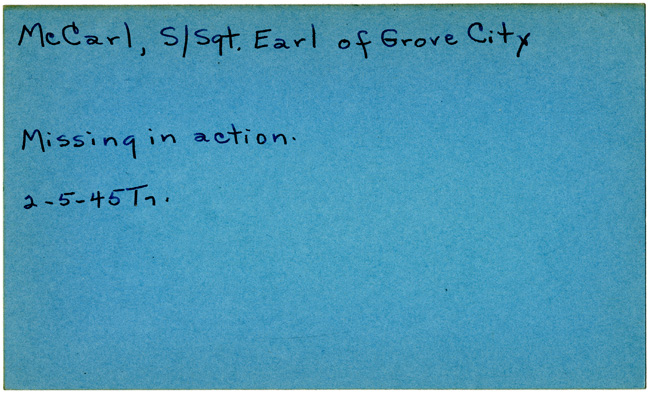 McCarl, S/Sgt. Earl of Grove City
Missing in action.
2-5-45 Tr.